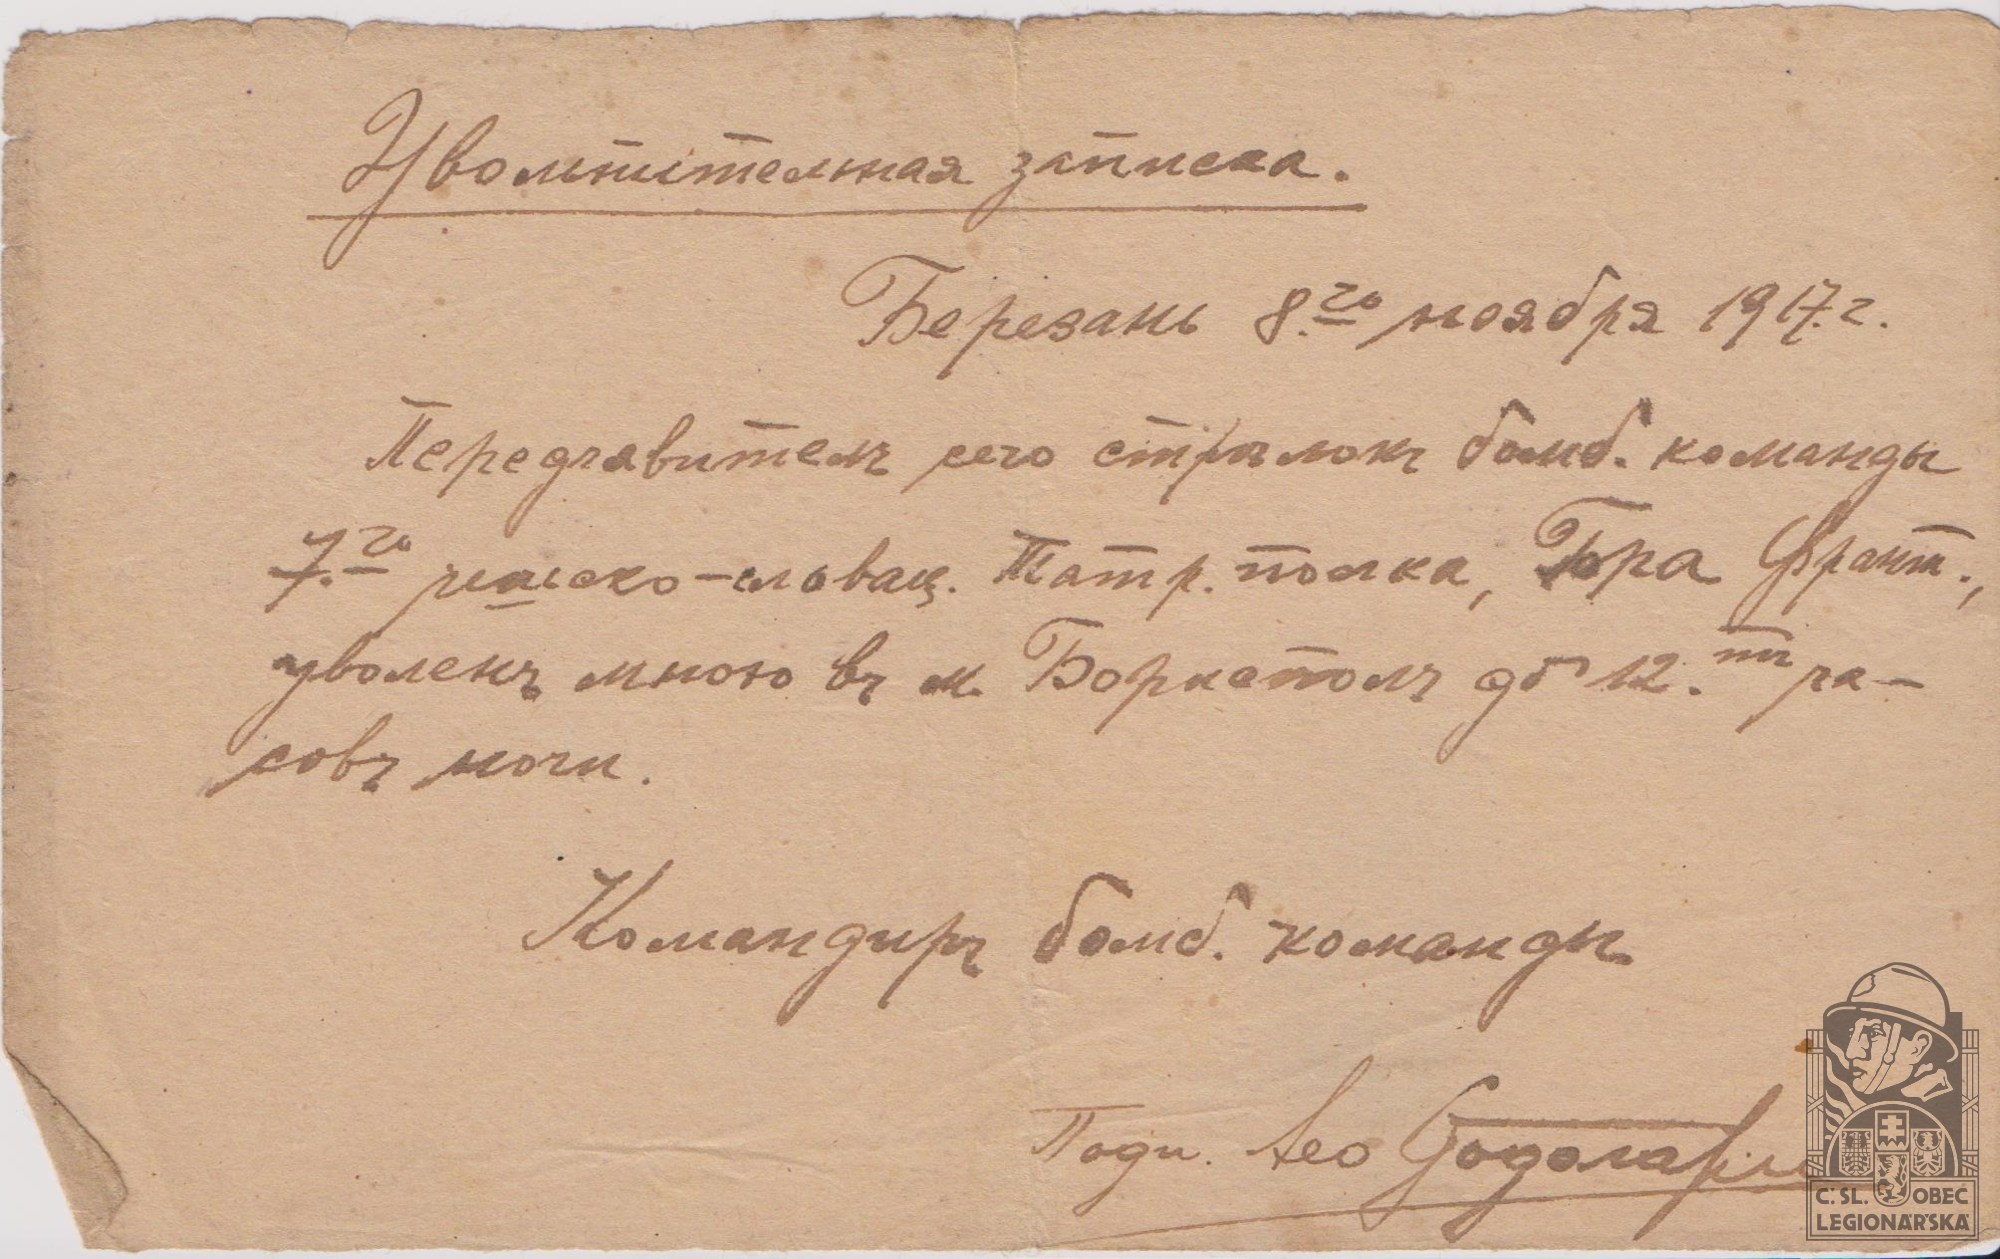 Увольнительная записка.
Березань 8.го ноября 1917.г.
Передъявитель сего стрѣлокъ бомб. команды
7.го чешско-словац. Татр. полка, Бра Франт.,
уволенъ мною въ м. Борисполь до 12.ти ча-
совъ ночи.
Командиръ бомб. команды.
Подп. Лео
Č. SL. OBEC
LEGIONÁŘSKÁ